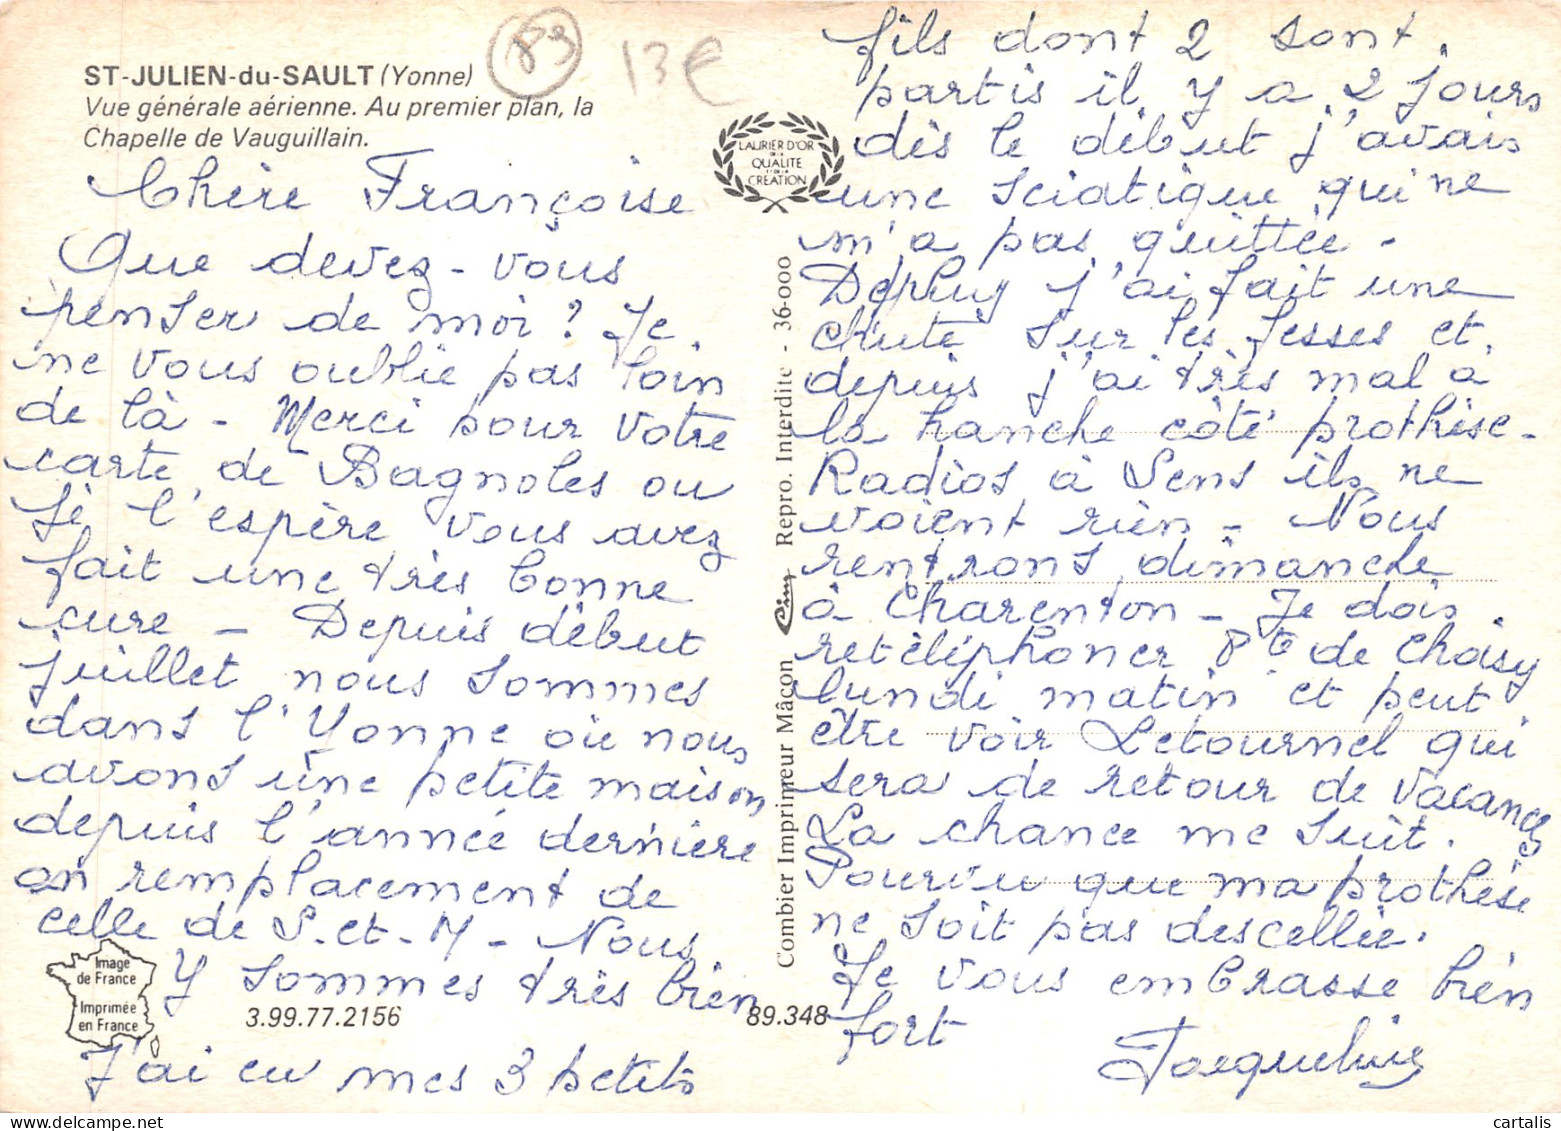 ST-JULIEN-du-SAULT (Yonne)
Vue générale aérienne. Au premier plan, la
Chapelle de Vauguillain.
89
13€
LAURIER D'OR
DE LA
QUALITE
ET DE LA
CREATION
Chère Françoise
Que devez-vous
penser de moi ? Je
ne vous oublie pas loin
de là - Merci pour votre
carte de Bagnoles ou
je l'espère vous avez
fait une très bonne
cure - Depuis début
juillet nous sommes
dans l'Yonne où nous
avons une petite maison
depuis l'année dernière
en remplacement de
celle de S.et-M - Nous
y sommes très bien
J'ai eu mes 3 petits
Image
de France
Imprimée
en France
3.99.77.2156
89.348
Combier Imprimeur Mâcon Cim Repro. Interdite - 36-000
fils dont 2 sont
partis il y a 2 jours
dès le début j'avais
une sciatique qui ne
m'a pas quittée -
Depluy j'ai fait une
chute sur les fesses et
depuis j'ai très mal à
la hanche côté prothèse -
Radios à Sens ils ne
voient rien - Nous
rentrons dimanche
à Charenton - Je dois
retéléphoner Pte de Choisy
lundi matin et peut
être voir Letournel qui
sera de retour de vacances
La chance me suit.
Pourvu que ma prothèse
ne soit pas descellée.
Je vous embrasse bien
fort
Jacqueline